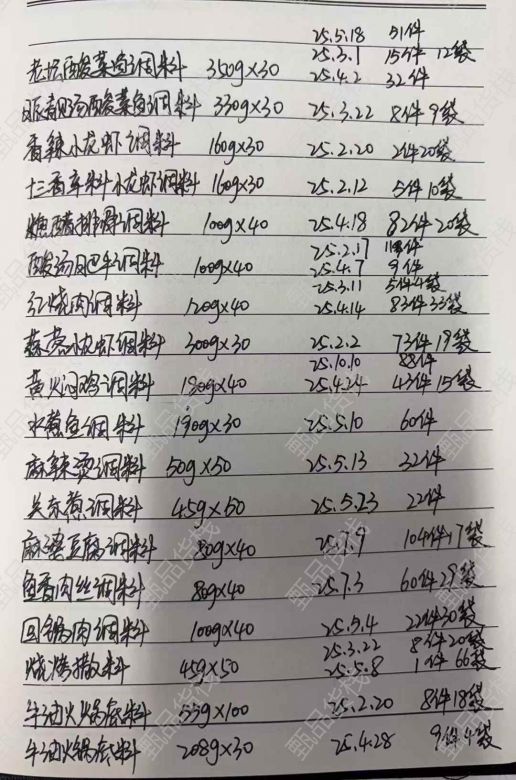 25.5.18 51件
25.3.1 15件 12袋
老坛酸菜鱼调料 350g×30 25.4.2 32件
酸菜鱼调料 330g×30 25.3.22 8件9袋
香辣小龙虾调料 160g×30 25.2.20 2件20袋
十三香 小龙虾调料 160g×30 25.2.12 5件10袋
糖醋排骨调料 100g×40 25.4.18 82件20袋
25.2.17 件
酸汤肥牛调料 100g×40 25.4.7 9件
25.3.11 5件4袋
红烧肉调料 120g×40 25.4.14 83件33袋
蒜蓉小龙虾调料 300g×30 25.2.2 73件19袋
25.10.10 88件
黄焖鸡调料 180g×40 25.4.24 43件15袋
水煮鱼调料 190g×30 25.5.10 60件
麻辣烫调料 50g×50 25.5.13 32件
关东煮调料 45g×50 25.5.23 22件
麻婆豆腐调料 80g×40 25.7.9 104件17袋
鱼香肉丝调料 80g×40 25.7.3 60件29袋
回锅肉调料 100g×40 25.9.4 22件30袋
25.3.22 8件20袋
烧烤撒料 45g×50 25.5.8 1件66袋
牛油火锅底料 55g×100 25.2.20 8件18袋
牛油火锅底料 208g×30 25.4.28 9件4袋
甄品货栈